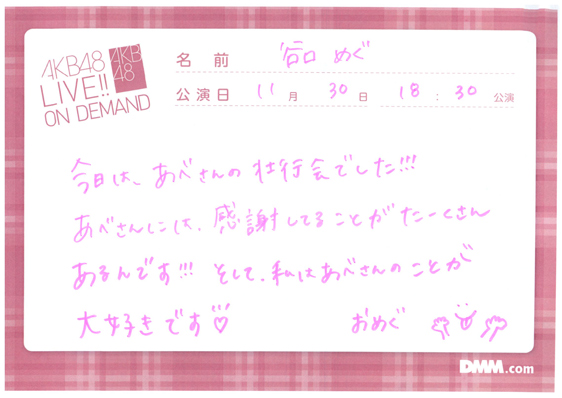 AKB48
LIVE!!
ON DEMAND
AKB
48
名前 谷口 めぐ
公演日 11月 30日 18:30 公演
今日は、あべさんの壮行会でした!!!
あべさんには、感謝してることがたーくさん
あるんです!!! そして、私はあべさんのことが
大好きです♡
おめぐ
DMM.com